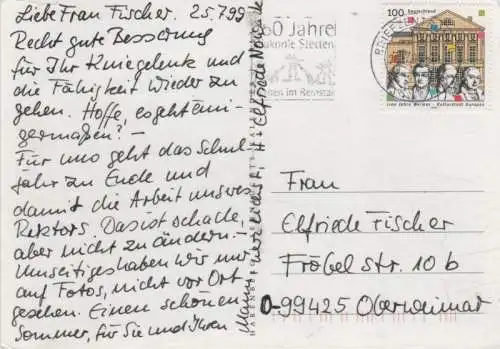 Liebe Frau Fischer. 25.7.99
Recht gute Besserung
für Ihr Kniegelenk und
die Fähigkeit wieder zu
gehen. Hoffe, es geht eini-
germaßen? –
Für uns geht das Schul-
jahr zu Ende und
damit die Arbeit unseres
Rektors. Das ist schade,
aber nicht zu ändern.
Unseitiges haben wir nur
auf Fotos, nicht vor Ort
gesehen. Einen schönen
Sommer, für Sie und Ihren
Mann
H. + Elfriede
50 Jahre
im Remstal
100 Deutschland
1100 Jahre Weimar - Kulturstadt Europas
BRIEFZ
Frau
Elfriede Fischer
Fröbel str. 10 b
D-99425 Oberweimar